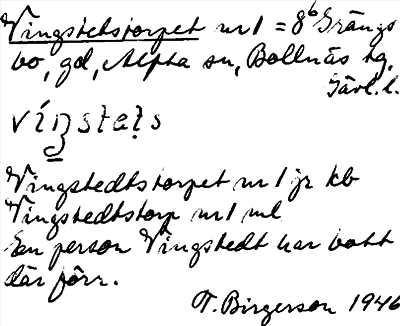 Vingstetstorpet nr 1 = 8⁶ Grängs
bo, gd, Alpha sn, Bollnäs tg,
Gävl. l.
víŋstets
Vingstedtstorpet nr 1 jr kb
Vingstedtstorp nr 1 ml
En person Vingstedt har bott
där förr.
T. Birgerson 1946